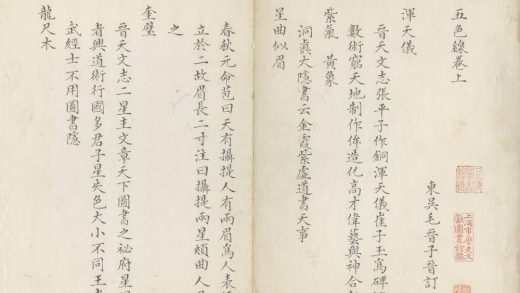 五色線卷上
東吳毛晉子晉訂
渾天儀
晉天文志張平子作銅渾天儀崔子玉為碑
數術窮天地制作侔造化高才偉藝與神合
紫氣 黃象
洞真大隱書云金霞紫虛道書天事
星曲似眉
春秋元命苞曰天有攝提人有兩眉為人表
立於二故眉長二寸注曰攝提兩星頰曲人
之
奎璧
晉天文志二星主文章天下圖書之祕府星
者興道術行國多君子星失色大小不同王
武經士不用圖書隱
龍尺木